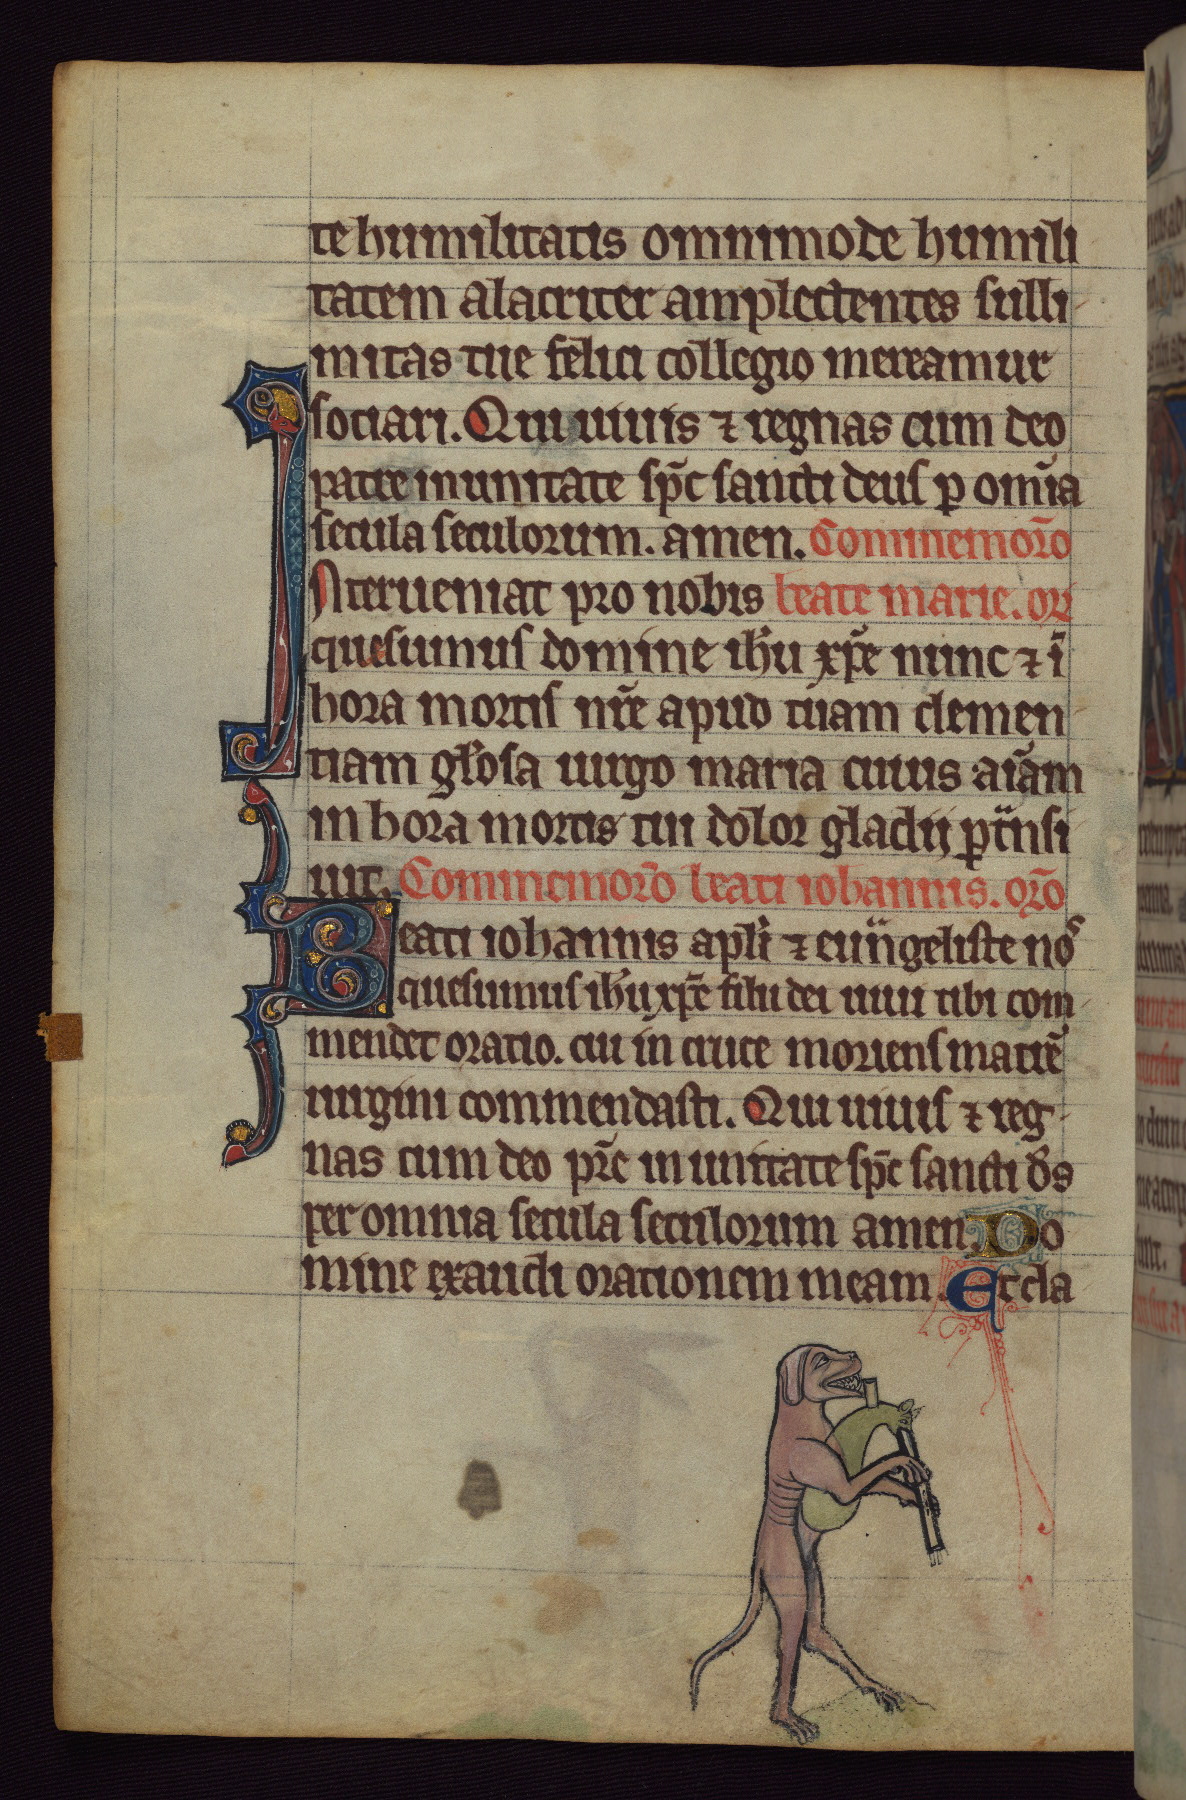 te humilitatis omnimode humili
tatem alacriter amplectentes sulli
mitas tue felici collegio mereamur
sociari. Qui uiuis ⁊ regnas cum deo
patre in unitate sp̄c sancti deus ꝑ om̄ia
secula seculorum. amen. Commemorō
INterueniat pro nobis beate marie. or̄
quesumus domine ih̄u xp̄e nunc ⁊ ī
hora mortis nr̄e apud tuam clemen
tiam gl̄osa uirgo maria cuius aīam
in hora mortis tui dolor gladij ꝑt̄nsi
uit. Commemorō beati iohannis. orō
Beati iohannis apl̄i ⁊ euu̅geliste nos
quesumus ih̄u xp̄e filii dei uiui tibi com
mendet oratio. cui in cruce moriens matrē
uirgini commendasti. Qui uiuis ⁊ reg
nas cum deo pr̄e in unitate sp̄c sancti d̄s
per omnia secula seculorum amen. Do
mine exaudi orationem meam. Et cla